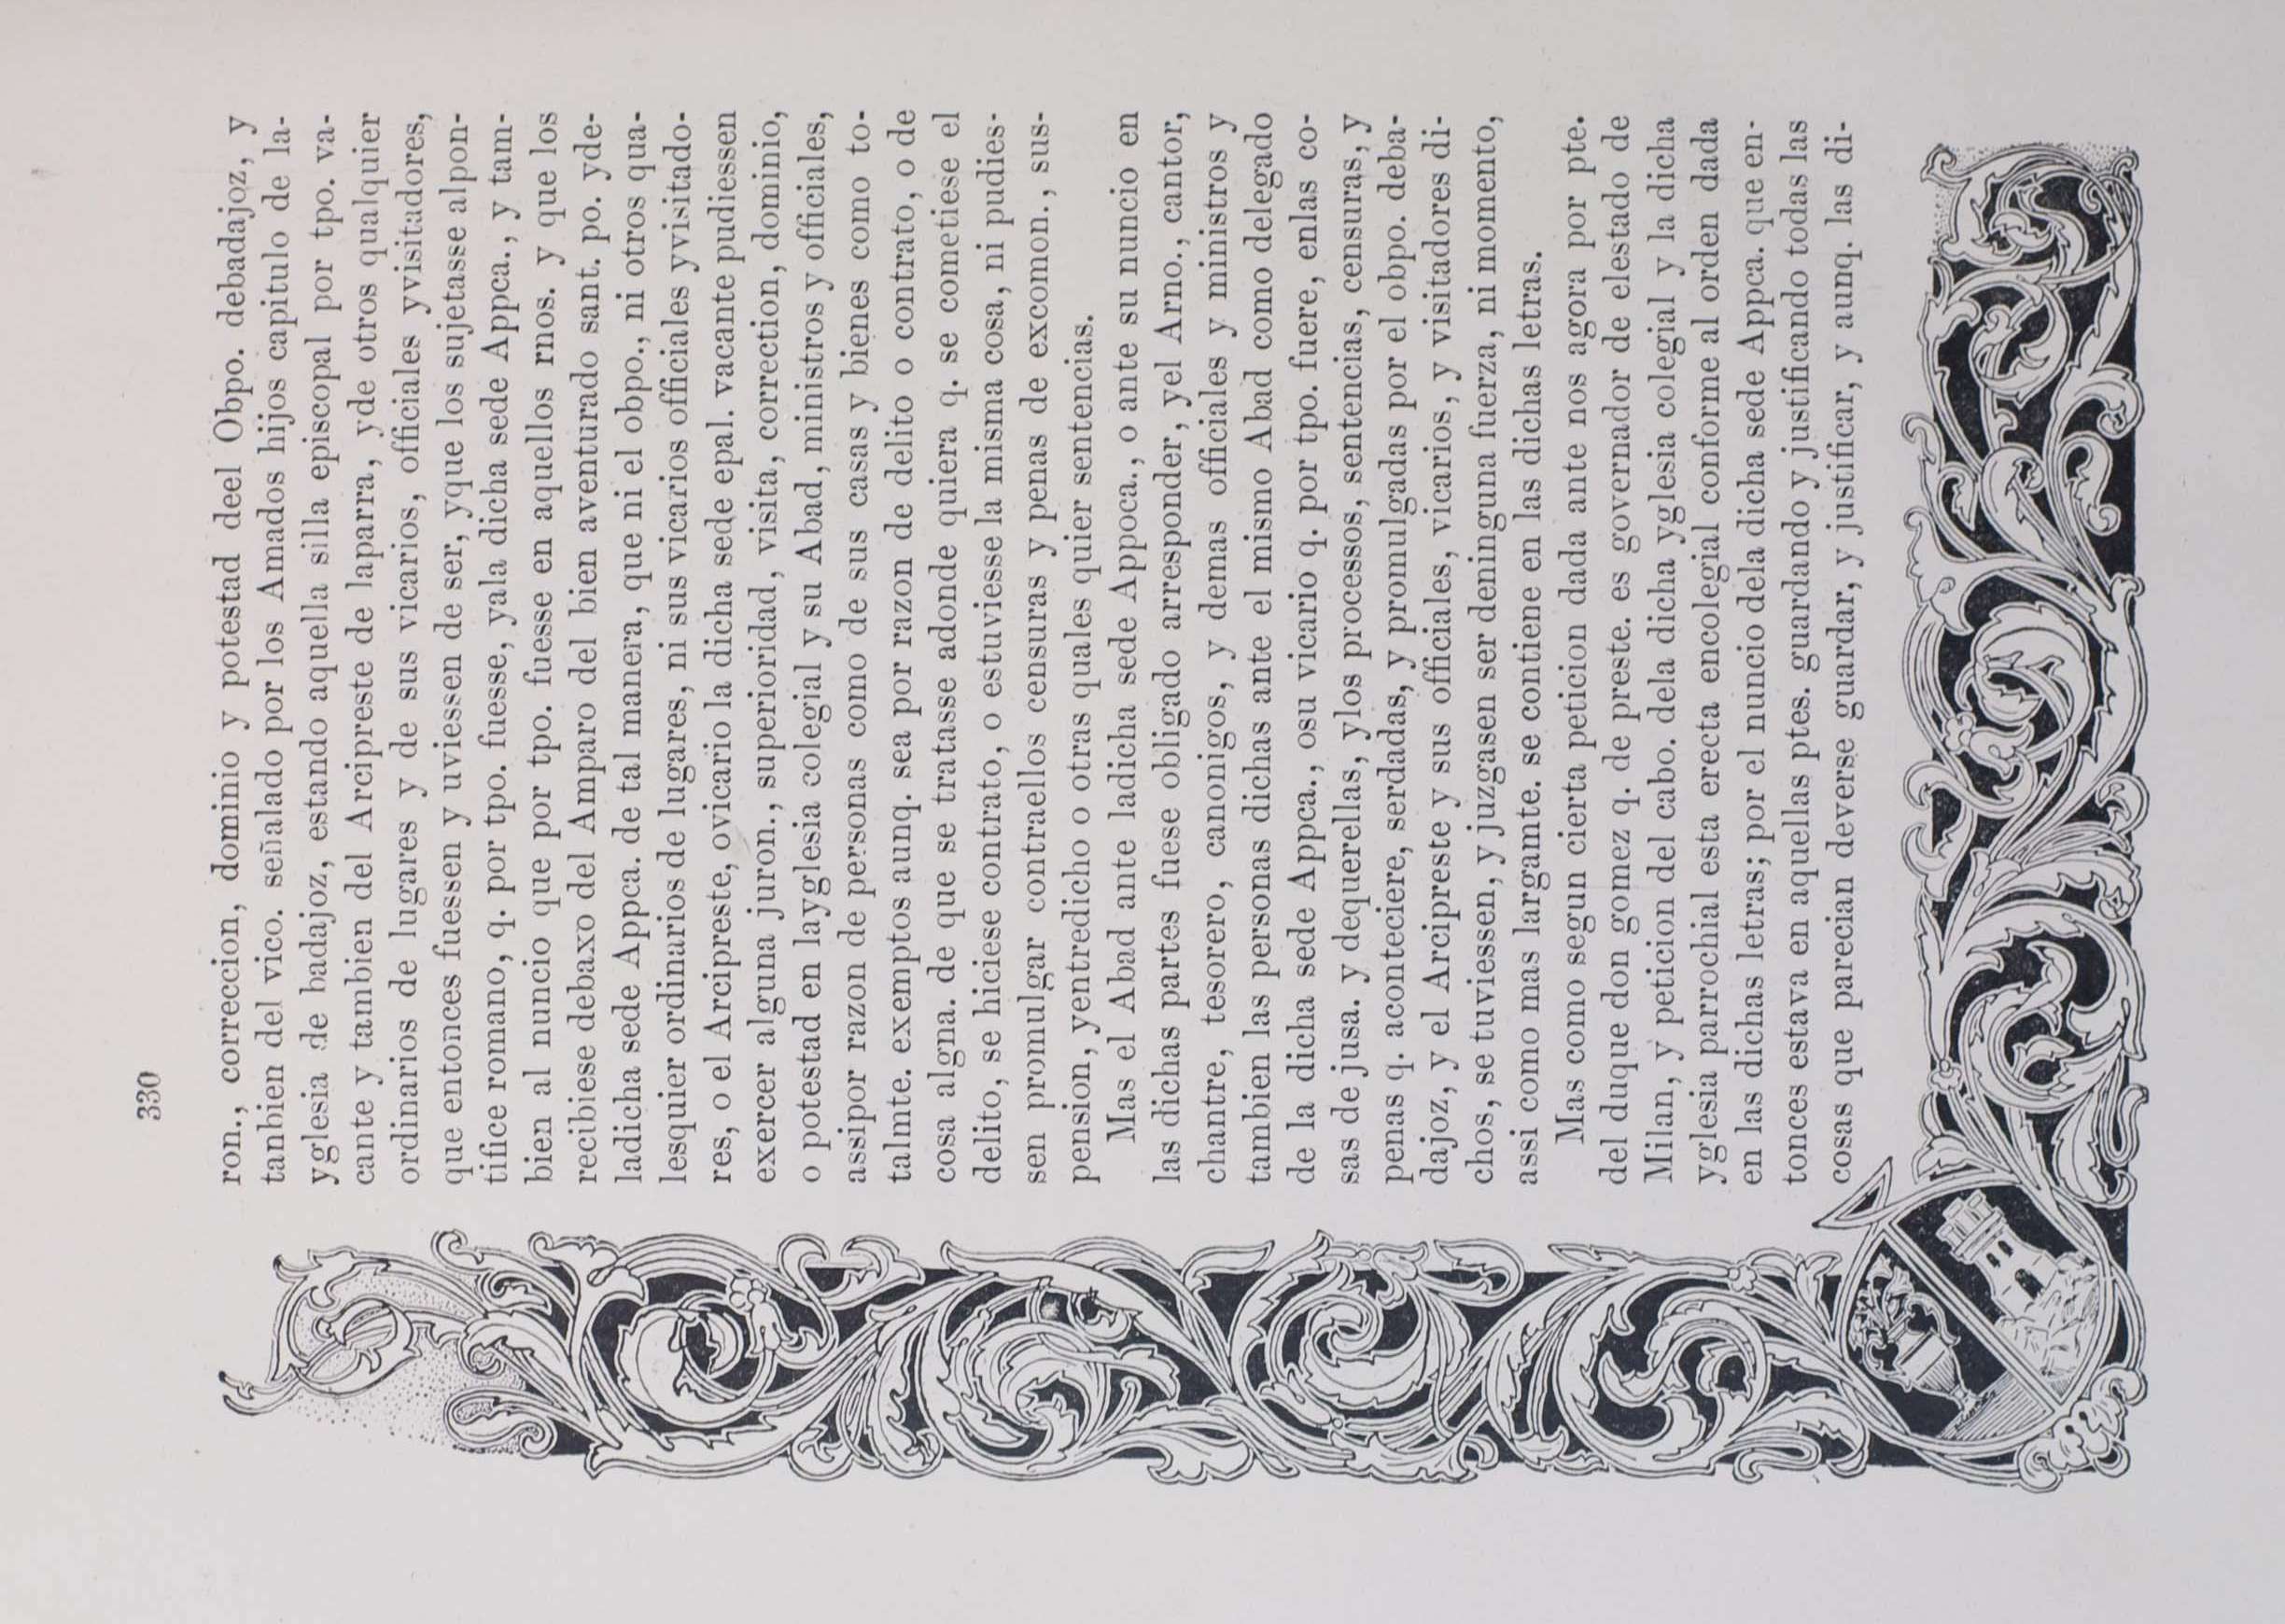 330
ron., correccion, dominio y potestad deel Obpo. debadajoz, y
tanbien del vico. señalado por los Amados hijos capitulo de la-
yglesia de badajoz, estando aquella silla episcopal por tpo. va-
cante y tambien del Arcipreste de laparra, yde otros qualquier
ordinarios de lugares y de sus vicarios, officiales yvisitadores,
que entonces fuessen y uviessen de ser, yque los sujetasse alpon-
tifice romano, q. por tpo. fuesse, yala dicha sede Appca., y tam-
bien al nuncio que por tpo. fuesse en aquellos rnos. y que los
recibiese debaxo del Amparo del bien aventurado sant. po. yde-
ladicha sede Appca. de tal manera, que ni el obpo., ni otros qua-
lesquier ordinarios de lugares, ni sus vicarios officiales yvisitado-
res, o el Arcipreste, ovicario la dicha sede epal. vacante pudiessen
exercer alguna juron., superioridad, visita, correction, dominio,
o potestad en layglesia colegial y su Abad, ministros y officiales,
assipor razon de personas como de sus casas y bienes como to-
talmte. exemptos aunq. sea por razon de delito o contrato, o de
cosa algna. de que se tratasse adonde quiera q. se cometiese el
delito, se hiciese contrato, o estuviesse la misma cosa, ni pudies-
sen promulgar contraellos censuras y penas de excomon., sus-
pension, yentredicho o otras quales quier sentencias.
Mas el Abad ante ladicha sede Appoca., o ante su nuncio en
las dichas partes fuese obligado arresponder, yel Arno., cantor,
chantre, tesorero, canonigos, y demas officiales y ministros y
tambien las personas dichas ante el mismo Abad como delegado
de la dicha sede Appca., osu vicario q. por tpo. fuere, enlas co-
sas de jusa. y dequerellas, ylos processos, sentencias, censuras, y
penas q. aconteciere, serdadas, y promulgadas por el obpo. deba-
dajoz, y el Arcipreste y sus officiales, vicarios, y visitadores di-
chos, se tuviessen, y juzgasen ser deninguna fuerza, ni momento,
assi como mas largamte. se contiene en las dichas letras.
Mas como segun cierta peticion dada ante nos agora por pte.
del duque don gomez q. de preste. es governador de elestado de
Milan, y peticion del cabo. dela dicha yglesia colegial y la dicha
yglesia parrochial esta erecta encolegial conforme al orden dada
en las dichas letras; por el nuncio dela dicha sede Appca. que en-
tonces estava en aquellas ptes. guardando y justificando todas las
cosas que parecian deverse guardar, y justificar, y aunq. las di-